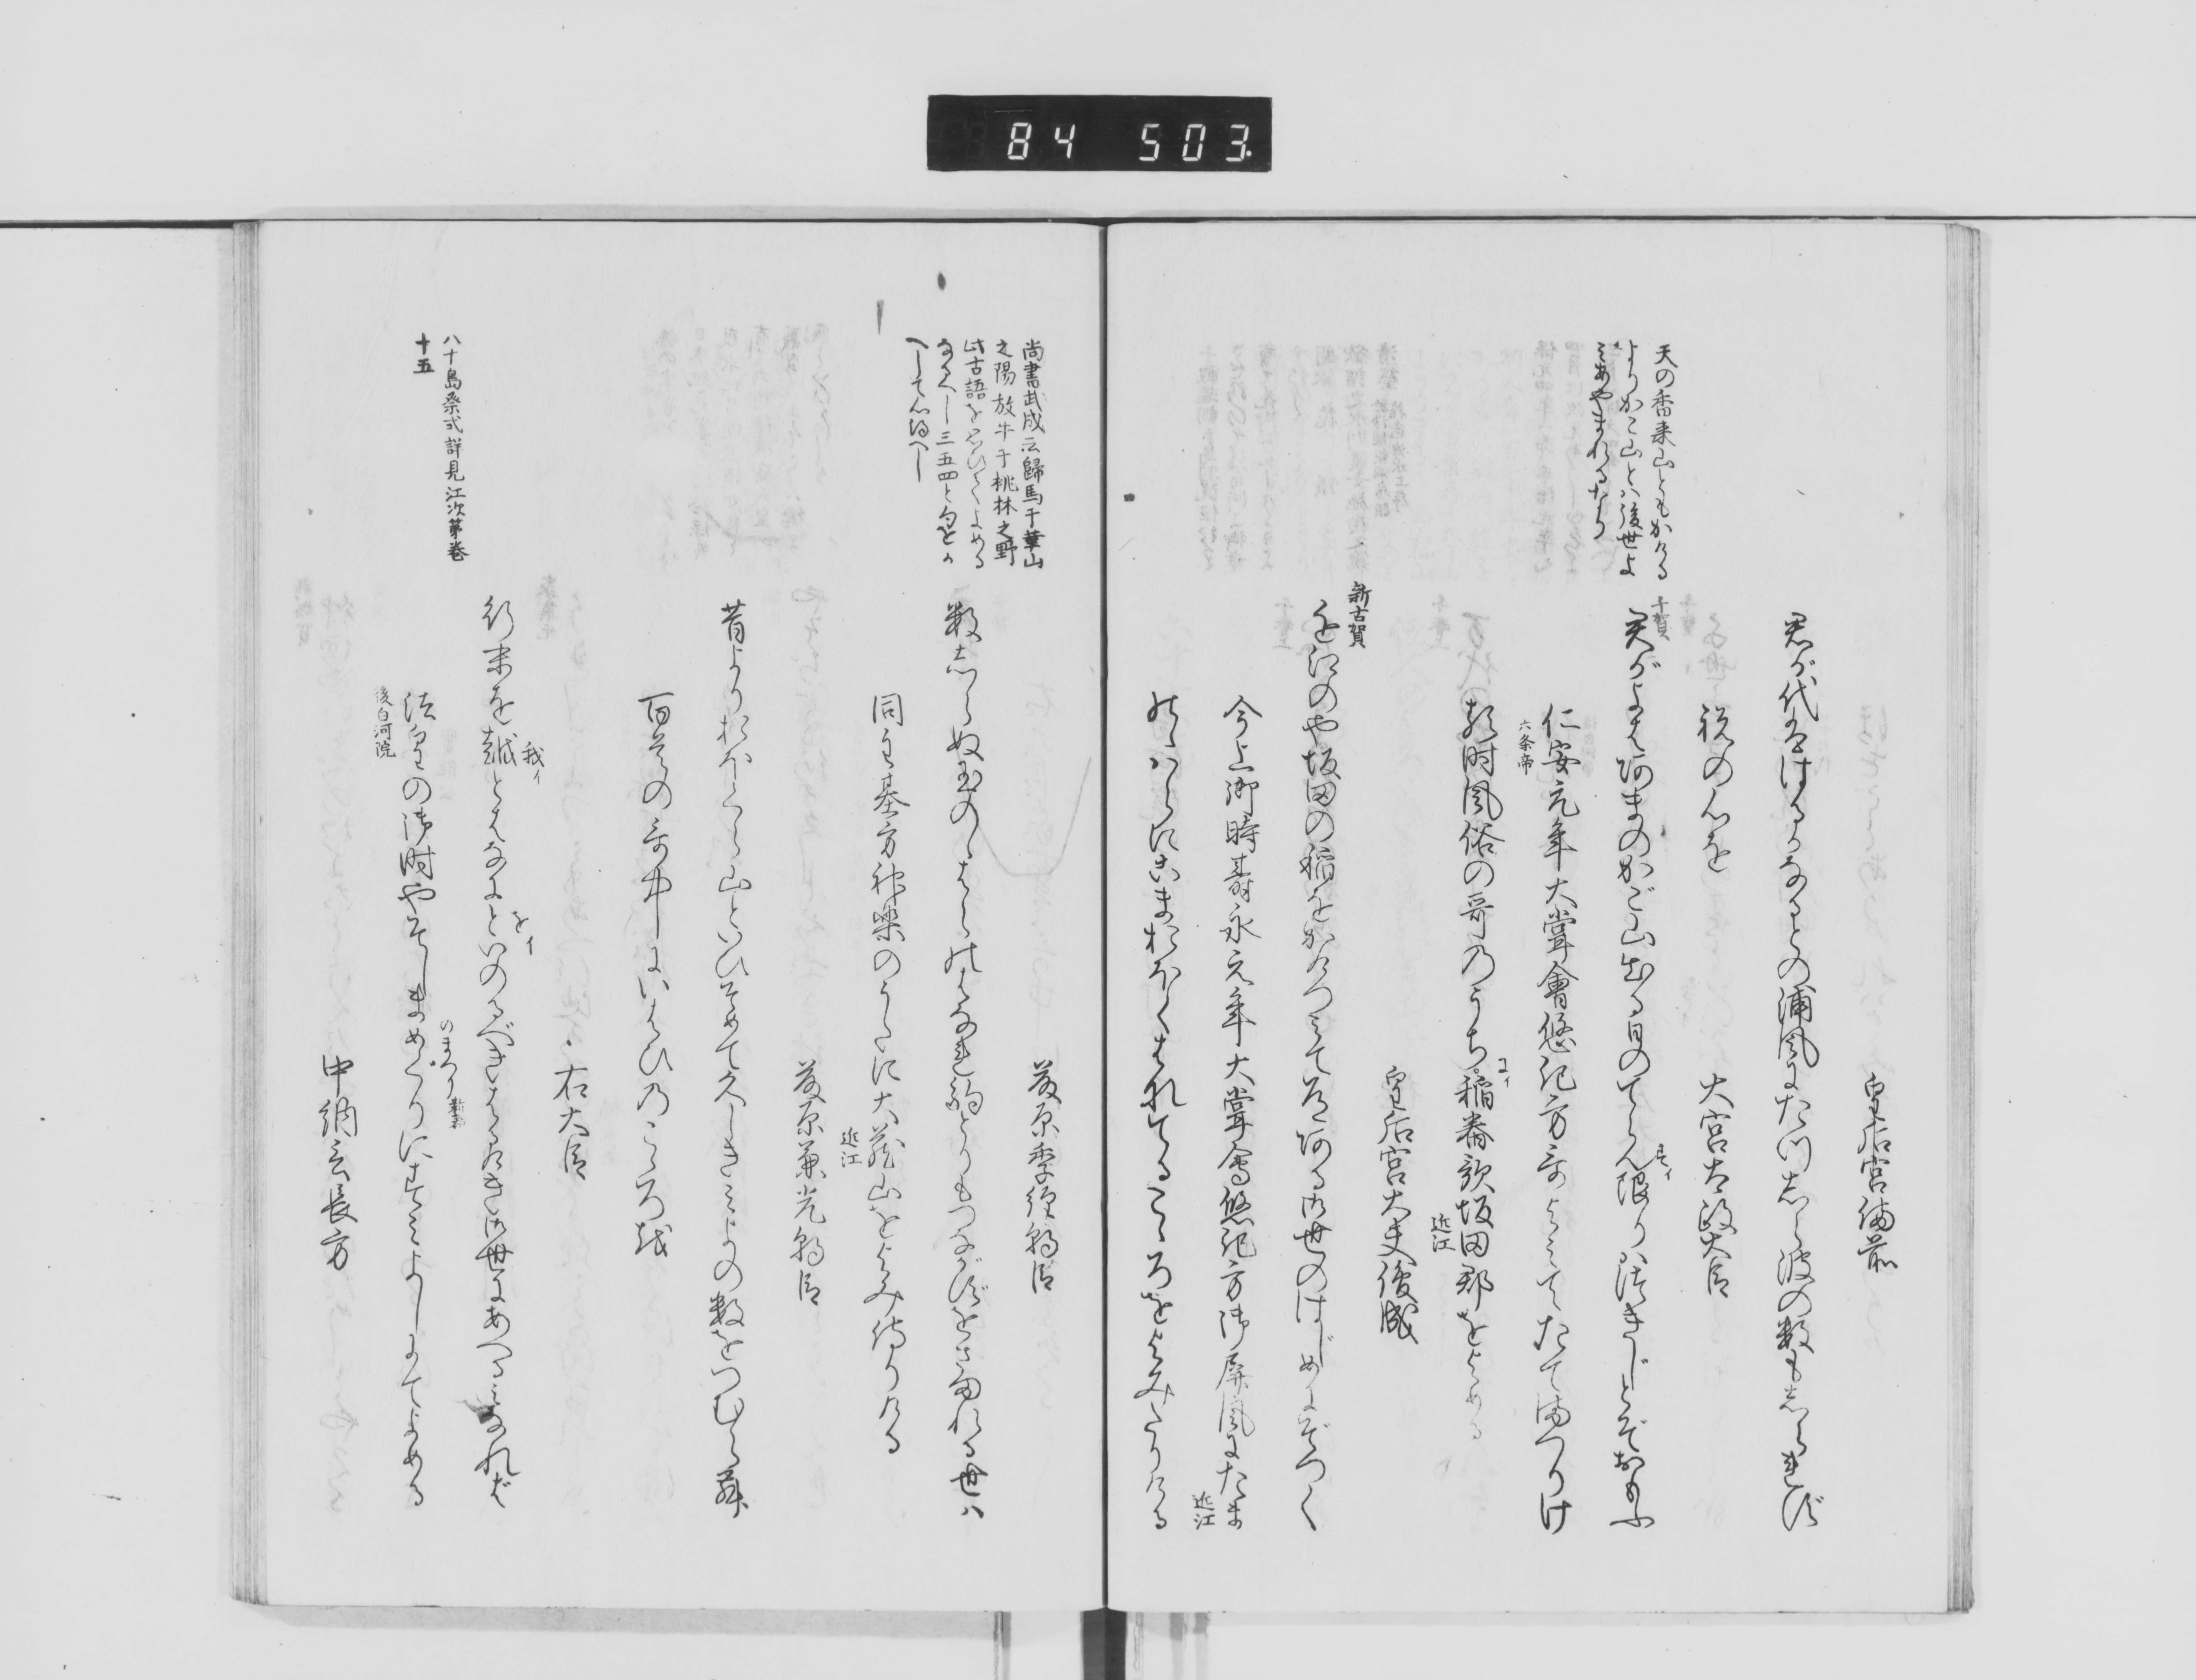 84 503.
皇后宮備前
君が代ははるかなるとの浦風にたつしら波の数もしられず
祝の心を
大宮太政大臣
天の香来山ともかける
よりかこ山とハ後世よ
りあやまれるなり
千賀
君がよはあまのかご山出る日のてらん限りハつきじとぞおもふ
仁安元年大嘗會悠紀方哥よみてたてまつりけ
六条帝
る時風俗の哥のうち稲舂歌坂田郡をよめる
近江
皇后宮大夫俊成
新古賀
近江のや坂田の稲をかけつみて道ある御世のはじめにぞつく
今上御時壽永元年大嘗會悠紀方御屏風にたま
近江
のゝはらにこまおほくはなれたるところをよみたりける
藤原季経朝臣
尚書武成云歸馬于華山
之陽放牛于桃林之野
此古語を思ひてよめる
なるへし三五四と句をか
へして心得へし
数しらぬ玉のゝはらのはなれ駒とりもつながずをさまれる世ハ
同主基方神楽のうたに大蔵山をよみ侍りける
近江
藤原兼光朝臣
昔よりおほくら山といひそめて久しきみよの数をつむらん
百首の哥中にいはひのこゝろを
右大臣
行末を越とはなにといのるべきはるけき御世にあへるみなれば
我イ
をイ
八十島祭式詳見江次第巻
十五
法皇の御時やそしまめぐりにすみよしにてよめる
後白河院
のまつり
中納言長方